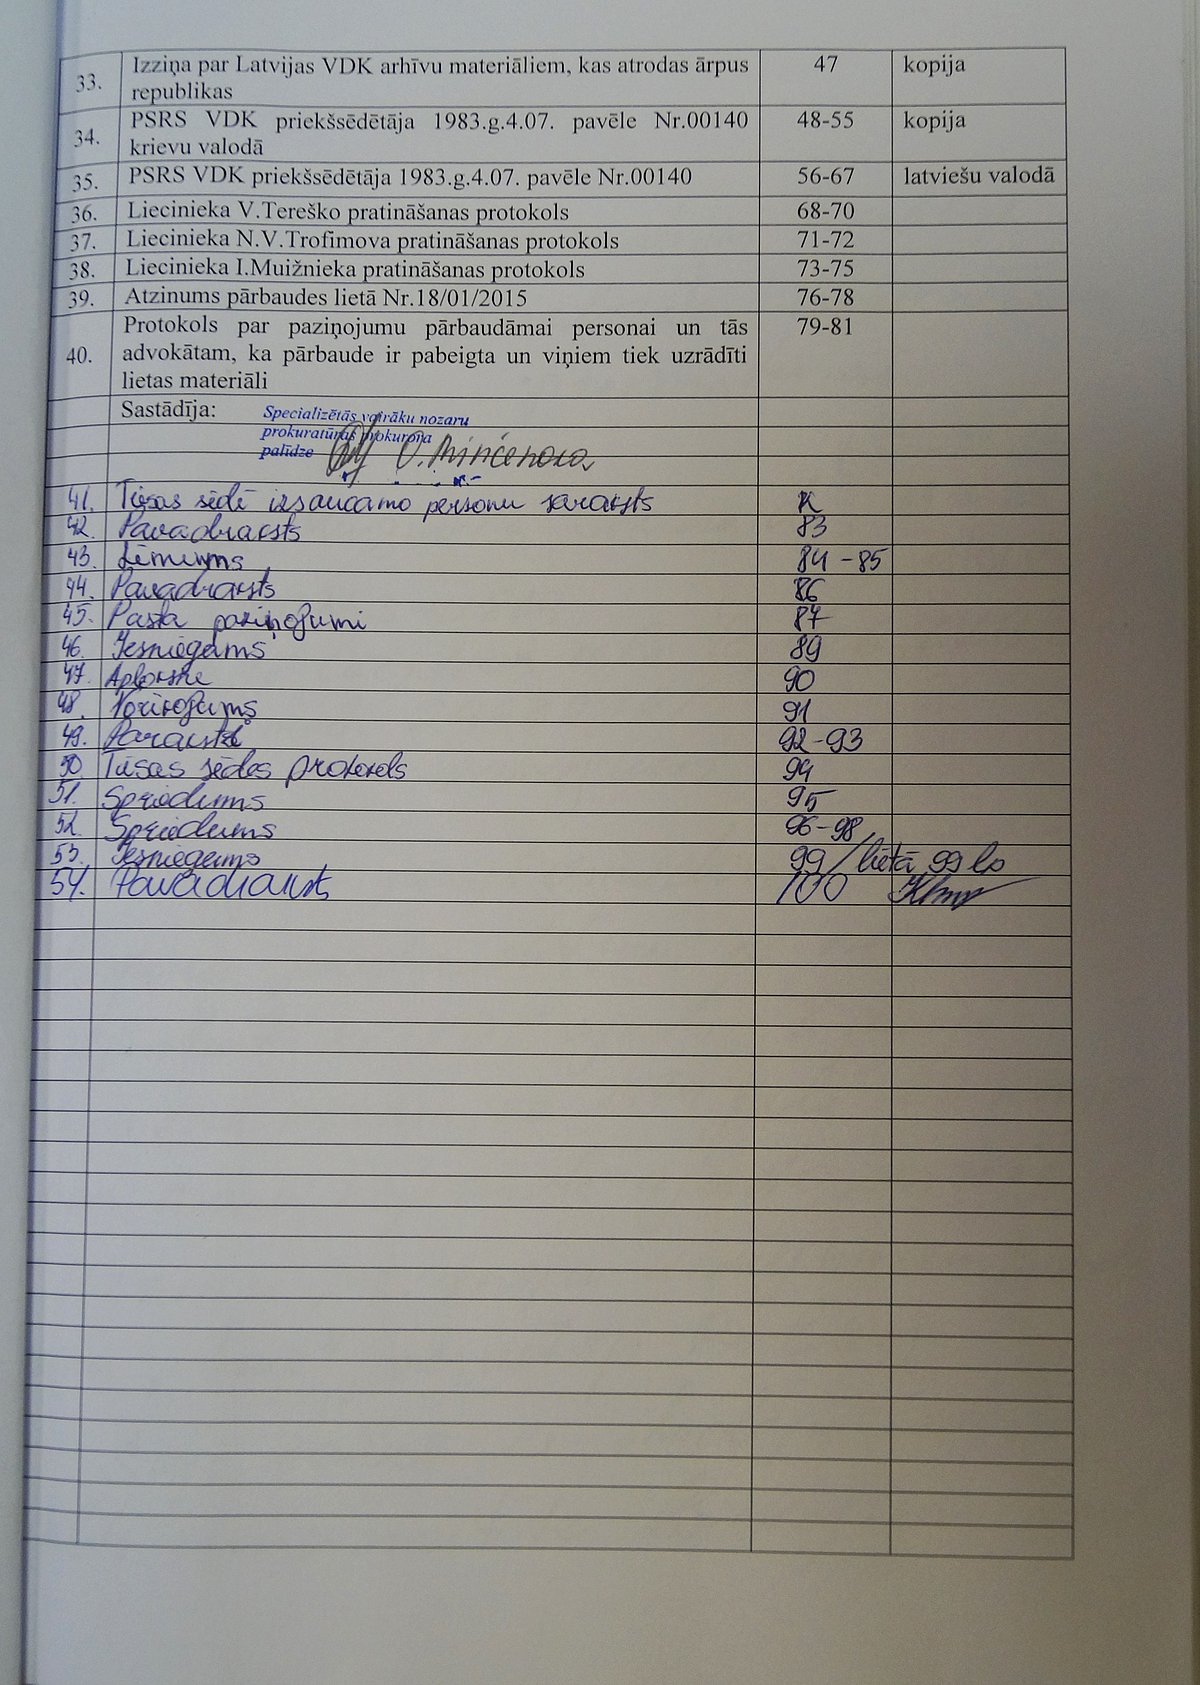 33. Izziņa par Latvijas VDK arhīvu materiāliem, kas atrodas ārpus 47 kopija
republikas
34. PSRS VDK priekšsēdētāja 1983.g.4.07. pavēle Nr.00140 48-55 kopija
krievu valodā
35. PSRS VDK priekšsēdētāja 1983.g.4.07. pavēle Nr.00140 56-67 latviešu valodā
36. Liecinieka V.Tereško pratināšanas protokols 68-70
37. Liecinieka N.V.Trofimova pratināšanas protokols 71-72
38. Liecinieka I.Muižnieka pratināšanas protokols 73-75
39. Atzinums pārbaudes lietā Nr.18/01/2015 76-78
40. Protokols par paziņojumu pārbaudāmai personai un tās 79-81
advokātam, ka pārbaude ir pabeigta un viņiem tiek uzrādīti
lietas materiāli
Sastādīja: Specializētās vairāku nozaru
prokuratūras prokurora
palīdze
41. Tiesas sēdē izsaucamo personu saraksts
42. Pavadraksts 83
43. Lēmums 84-85
44. Pavadraksts 86
45. Pasta paziņojumi 87
46. Iesniegums 89
47. Aploksne 90
48. 91
49. 92-93
50. Tiesas sēdes protokols 94
51. Spriedums 95
52. Spriedums 96-98
53. Iesniegums 99 / lietā 99 lp
54. Pavadraksts 100